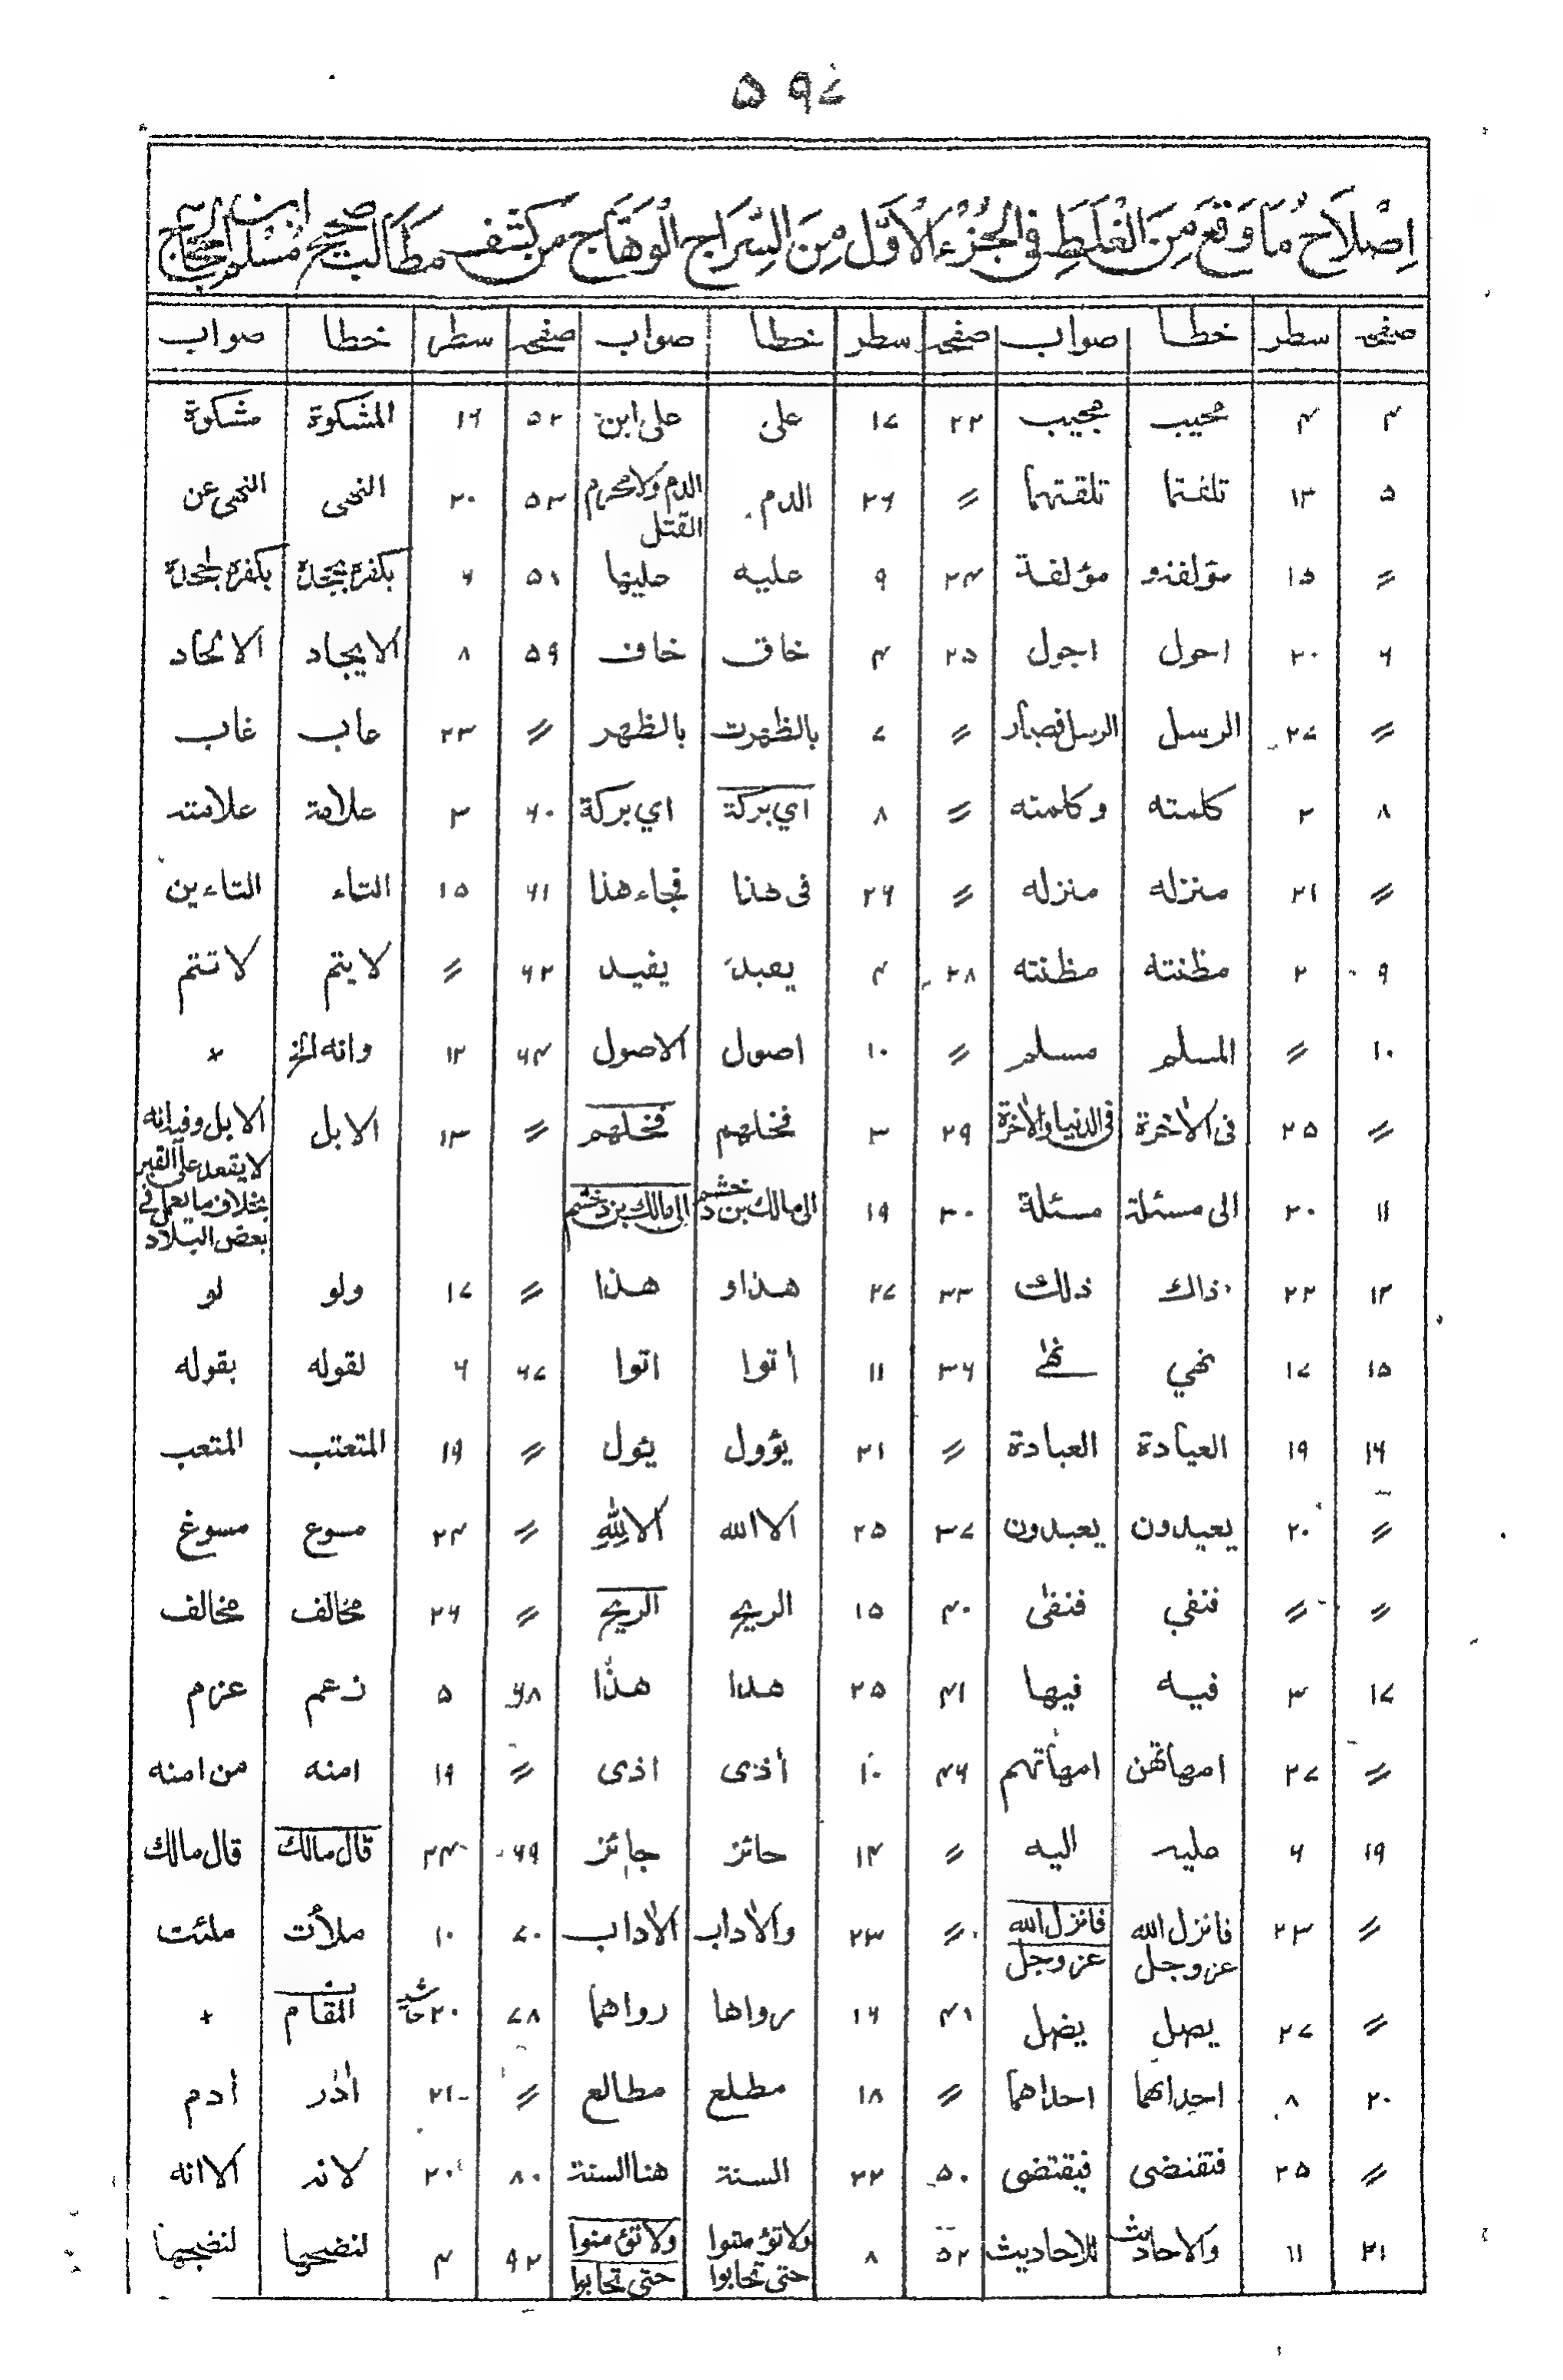 ۵۹۷
اِصْلَاحُ مَا وَقَعَ مِنَ الْغَلَطِ فِي الْجُزْءِ الْاَوَّلِ مِنَ السِّرَاجِ الْوَهَّاجِ مِنْ كَشْفِ مَطَالِبِ صَحِيحِ مُسْلِمِ ابن الْحَجَّاجِ
صفحه سطر خطا صواب صفحه سطر خطا صواب صفحه سطر خطا صواب
۴ ۴ محيب مجيب ۲۲ ۱۷ على على ابن ۵۲ ۱۶ المشكوة مشكوة
۵ ۱۳ تلقتا تلقتهما 〃 ۲۶ الدم الدم ولا محرم القتل ۵۳ ۲۰ النهى النهى عن
〃 ۱۵ مؤلفذو مؤلفة ۲۴ ۹ عليه عليها ۵۸ ۶ بكفره بجحدة بكفره لجحدة
۶ ۲۰ احول اجول ۲۵ ۴ خاق خاف ۵۹ ۸ الايجاد الاتحاد
〃 ۲۷ الرسل الرسل فصار 〃 ۷ بالظهرت بالظهر 〃 ۲۳ عاب غاب
۸ ۲ كلمته وكلمته 〃 ۸ اي بركة اي بركة ۶۰ ۳ علامة علامته
〃 ۲۱ منزله منزله 〃 ۲۶ فى هذا فجاء هذا ۶۱ ۱۵ التاء التاءين
۹ ۲ مظنته مظنته ۲۸ ۴ يعبد يفيد ۶۲ 〃 لا يتم لا تتم
۱۰ 〃 المسلم مسلم 〃 ۱۰ اصول الاصول ۶۴ ۱۲ وانه الخ ×
〃 ۲۵ فى الاخرة فى الدنيا والاخرة ۲۹ ۳ فخلهم فخلهم 〃 ۱۳ الابل الابل وفيه انه لا يقعد على القبر بخلاف ما يعمل فى بعض البلاد
۱۱ ۲۰ الى مسئلة مسئلة ۳۰ ۱۹ الى مالك بن دخشم الى مالك بن دخشم
۱۲ ۲۲ ذاك ذلك ۳۳ ۲۷ هذاو هذا 〃 ۱۷ ولو لو
۱۵ ۱۷ نهي نهى ۳۶ ۱۱ أتوا اتوا ۶۷ ۶ لقوله بقوله
۱۶ ۱۹ العيادة العبادة 〃 ۲۱ يؤول يئول 〃 ۱۹ المتعتب المتعب
〃 ۲۰ يعيدون يعبدون ۳۷ ۲۵ الا الله الا لله 〃 ۲۴ مسوع مسوغ
〃 〃 فنفي فنفى ۴۰ ۱۵ الريح الريح 〃 ۲۶ مخالف مخالف
۱۷ ۳ فيه فيها ۴۱ ۲۵ هدا هذا ۶۸ ۵ زعم عزم
〃 ۲۷ امهاتهن امهاتهم ۴۶ ۱۰ أذى اذى 〃 ۱۹ امنه من امنه
۱۹ ۶ عليه اليه 〃 ۱۴ حائز جائز ۶۹ ۲۴ قال مالك قال مالك
〃 ۲۳ فانزل الله عز وجل فانزل الله عز وجل 〃 ۲۳ والاداب الاداب ۷۰ ۱۰ ملأت ملئت
〃 ۲۷ يصل يضل ۴۸ ۱۶ رواها رواهما ۷۸ ۲۰ حاشية المقام ×
۲۰ ۸ احداهما احداهما 〃 ۱۸ مطلع مطالع 〃 ۲۱ اذر أدم
〃 ۲۵ فتقتضى فيقتضى ۵۰ ۲۲ السنة هنا السنة ۸۰ ۲۰ لانه الا انه
۲۱ ۱۱ والاحاديث للاحاديث ۵۲ ۸ ولا تؤمنوا حتى تحابوا ولا تؤمنوا حتى تحابوا ۹۲ ۴ لنضحيها لنضجها